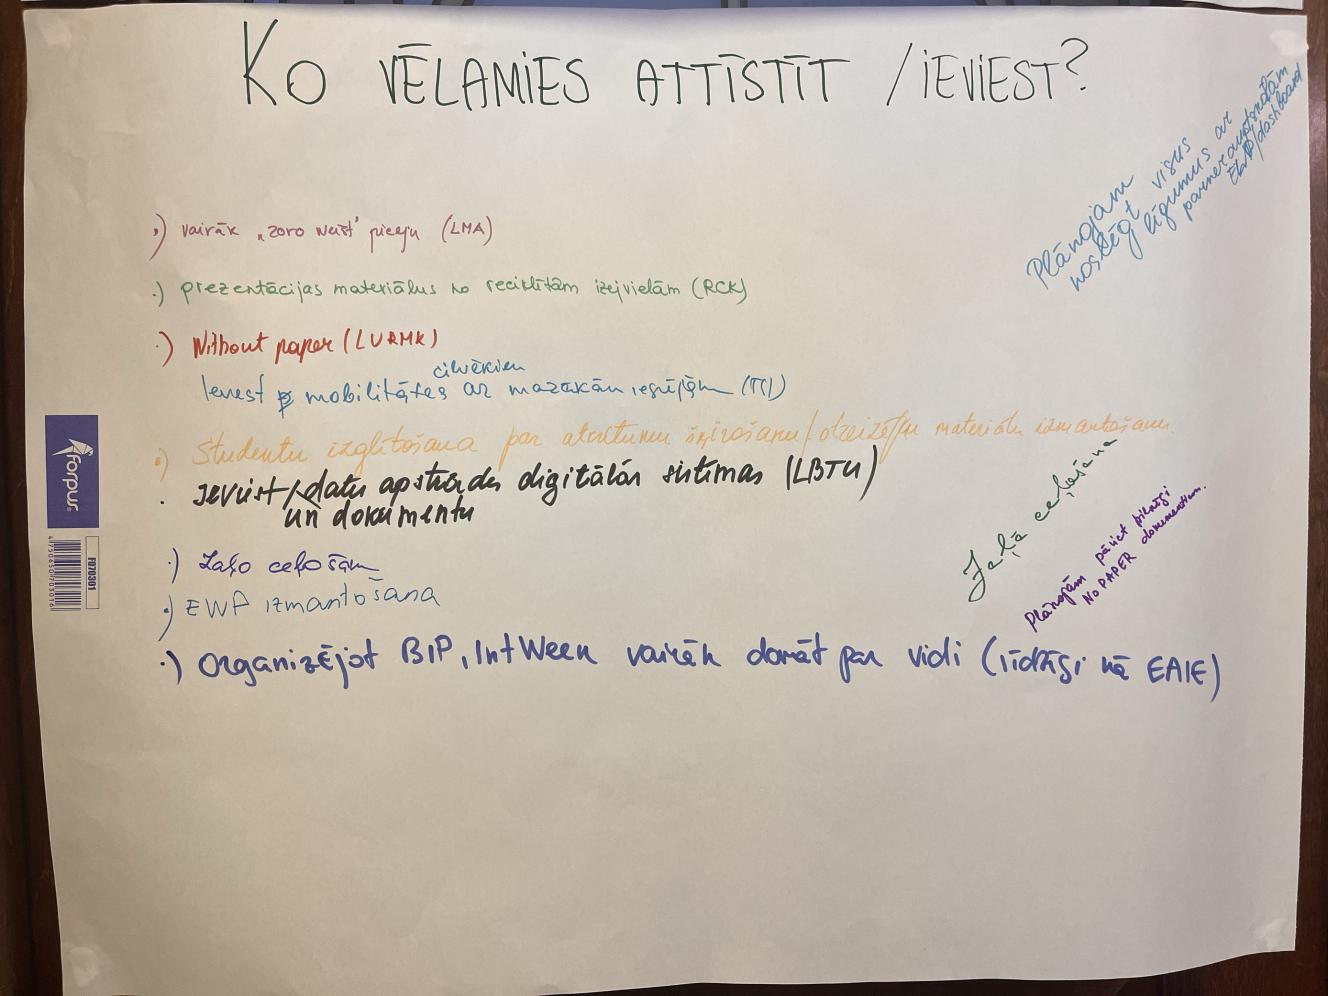 KO VĒLAMIES ATTĪSTĪT /IEVIEST?
Plānojam
noslēgt visus
līgumus ar
partneraugstskolām
EWP/dashboard
•) vairāk „zero waist" pieeju (LMA)
•) prezentācijas materiālus no reciklētām izejvielām (RCK)
•) Without paper (LURMK)
cilvēkiem
Ieviest mobilitātes ar mazākām iespējām
•) Studentu izglītošana par atkritumu šķirošanu/otrreizēju materiālu izmantošanu.
• Ieviest/datu apstrādes digitālās sistēmas (LBTU)
un dokumentu
Zaļā ceļošana
Plānojam pāriet pilnīgi
No PAPER dokumentiem.
•) Zaļo ceļošanu
•) EWP izmantošana
•) Organizējot BIP, IntWeek vairāk domāt par vidi (līdzīgi kā EAIE)
forpus
F070301